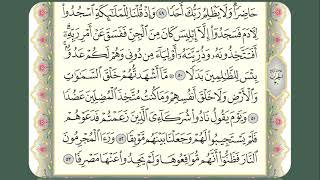 حَاضِرًا وَلَا يَظْلِمُ رَبُّكَ أَحَدًا ٤٩ وَإِذْ قُلْنَا لِلْمَلَٰٓئِكَةِ ٱسْجُدُوا۟
لِءَادَمَ فَسَجَدُوٓا۟ إِلَّآ إِبْلِيسَ كَانَ مِنَ ٱلْجِنِّ فَفَسَقَ عَنْ أَمْرِ رَبِّهِۦٓ
أَفَتَتَّخِذُونَهُۥ وَذُرِّيَّتَهُۥٓ أَوْلِيَآءَ مِن دُونِى وَهُمْ لَكُمْ عَدُوٌّۢ
بِئْسَ لِلظَّٰلِمِينَ بَدَلًا ٥٠ مَّآ أَشْهَدتُّهُمْ خَلْقَ ٱلسَّمَٰوَٰتِ
وَٱلْأَرْضِ وَلَا خَلْقَ أَنفُسِهِمْ وَمَا كُنتُ مُتَّخِذَ ٱلْمُضِلِّينَ عَضُدًا
٥١ وَيَوْمَ يَقُولُ نَادُوا۟ شُرَكَآءِىَ ٱلَّذِينَ زَعَمْتُمْ فَدَعَوْهُمْ
فَلَمْ يَسْتَجِيبُوا۟ لَهُمْ وَجَعَلْنَا بَيْنَهُم مَّوْبِقًا ٥٢ وَرَءَا ٱلْمُجْرِمُونَ
ٱلنَّارَ فَظَنُّوٓا۟ أَنَّهُم مُّوَاقِعُوهَا وَلَمْ يَجِدُوا۟ عَنْهَا مَصْرِفًا ٥٣